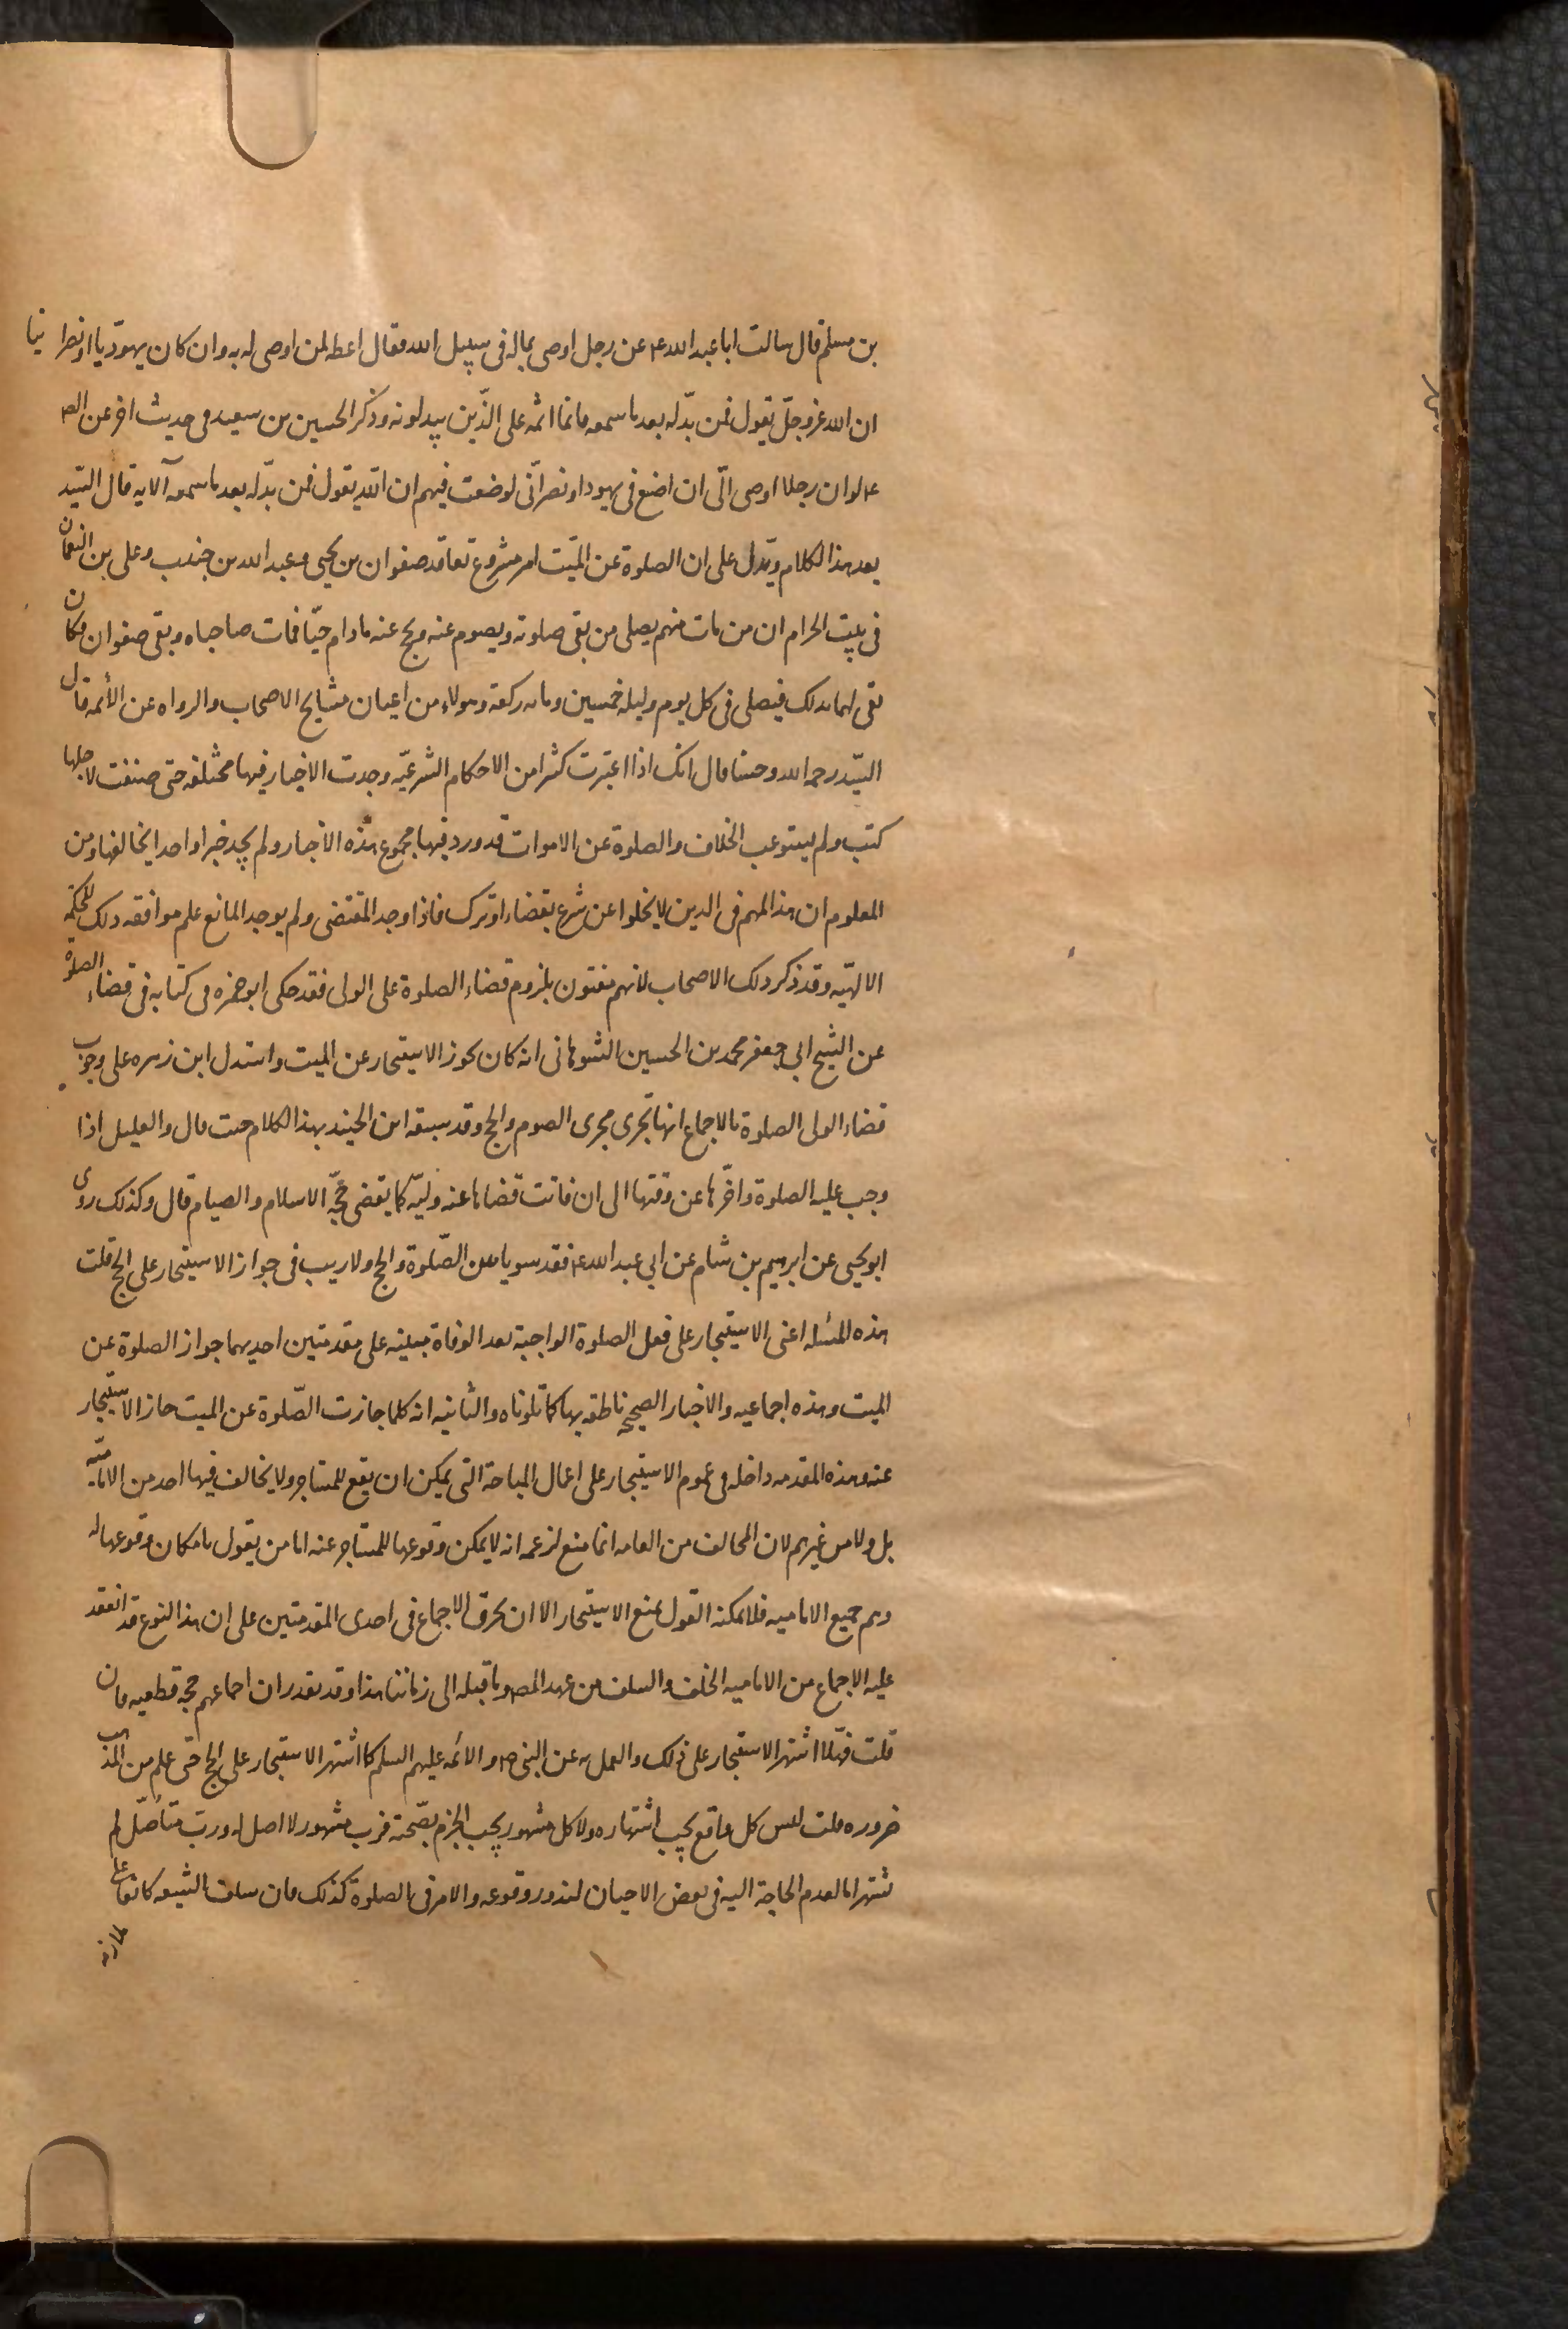 بن مسلم قال سالت ابا عبد الله ع عن رجل اوصى بماله فى سبيل الله فقال اعطه لمن اوصى له به وان كان يهوديا او نصرانيا
ان الله عز وجل يقول فمن بدّله بعد ما سمعه فانما اثمه على الذّين يبدلونه وذكر الحسين بن سعيد فى حديث اخر عن الص
ع لو ان رجلا اوصى الّى ان اضع فى يهود او نصرانّى لوضعت فيهم ان الله يقول فمن بدّله بعد ما سمعه الآيه قال السّيد
بعد هذا الكلام ويّدل على ان الصلوة عن الميّت امر مشروع تعاقد صفوان بن يحيى وعبد الله بن جندب وعلى بن النعمان
فى بيت الحرام ان من مات منهم يصلى من بقى صلوته ويصوم عنه ويحج عنه ما دام حيّا فمات صاحباه وبقى صفوان فكان
يفى لهما بذلك فيصلى فى كل يوم وليله خمسين ومائه ركعة وهولاء من اعيان مشايخ الاصحاب والرواه عن الأئمه قال
السّيد رحمه الله وحسنا قال انك اذا اعتبرت كثيرا من الاحكام الشرعيّه وجدت الاخبار فيها مختلفه حتى صنفت لاجلها
كتب ولم يستوعب الخلاف والصلوة عن الاموات قد ورد فيها مجموع هذه الاخبار ولم يجد خبرا واحدا يخالفها ومن
المعلوم ان هذا المهم فى الدين لا يخلوا عن شرع بقضاء او ترك فاذا وجد المقتضى ولم يوجد المانع علم موافقه ذلك للحكمة
الالهيّه وقد ذكر ذلك الاصحاب لانهم مفتون بلزوم قضاء الصلوة على الولى فقد حكى ابو حمزه فى كتابه فى قضاء الصلوة
عن الشيخ ابي جعفر محمد بن الحسين الشوهانى انه كان يجوز الاستيجار عن الميت واستدل ابن زهره على وجوب
قضاء الولى الصلوة بالاجماع انها تجرى مجرى الصوم والحج وقد سبقه ابن الجنيد بهذا الكلام حيث قال والعليل اذا
وجب عليه الصلوة واخّرها عن وقتها الى ان فاتت قضاها عنه وليّه كما يقضى حجّة الاسلام والصيام قال وكذلك روى
ابو يحيى عن ابرهيم بن هشام عن ابي عبد الله ع فقد سويا بين الصّلوة والحج ولا ريب فى جواز الاستيجار على الحج قلت
هذه المسئله اعنى الاستيجار على فعل الصلوة الواجبة بعد الوفاة مبنيه على مقدمتين احديهما جواز الصلوة عن
الميت وهذه اجماعيه والاخبار الصحيحه ناطقه بها كما تلوناه والثانيه انه كلما جازت الصّلوة عن الميت جاز الاستيجار
عنه وهذه المقدمه داخله فى عموم الاستيجار على اعمال المباحة التى يمكن ان يقع للمستاجر ولا يخالف فيها احد من الاماميّه
بل ولا من غيرهم لان المخالف من العامه انما منع لزعمه انه لا يمكن وقوعها للمستاجر عنه اما من يقول بامكان وقوعها له
وهم جميع الاماميه فلا يمكنه القول بمنع الاستيجار الا ان يخرق الاجماع فى احدى المقدمتين على ان هذا النوع قد انعقد
عليه الاجماع من الاماميه الخلف والسلف من عهد المصـ وما قبله الى زماننا هذا وقد تقدر ان اجماعهم حجة قطعيه فان
قلت فهّلا اشتهر الاستيجار على ذلك والعمل به عن النبى ص والائمه عليهم السلم كما اشتهر الاستيجار على الحج حتى علم من المذهب
ضروره قلت ليس كل واقع يجب اشتهاره ولا كل مشهور يجب الجزم بصّحته فرب مشهور لا اصل له ورب متاصّل لم
يشتهر اما لعدم الحاجة اليه فى بعض الاحيان لندور وقوعه والامر فى الصلوة كذلك فان سلف الشيعه كانوا على